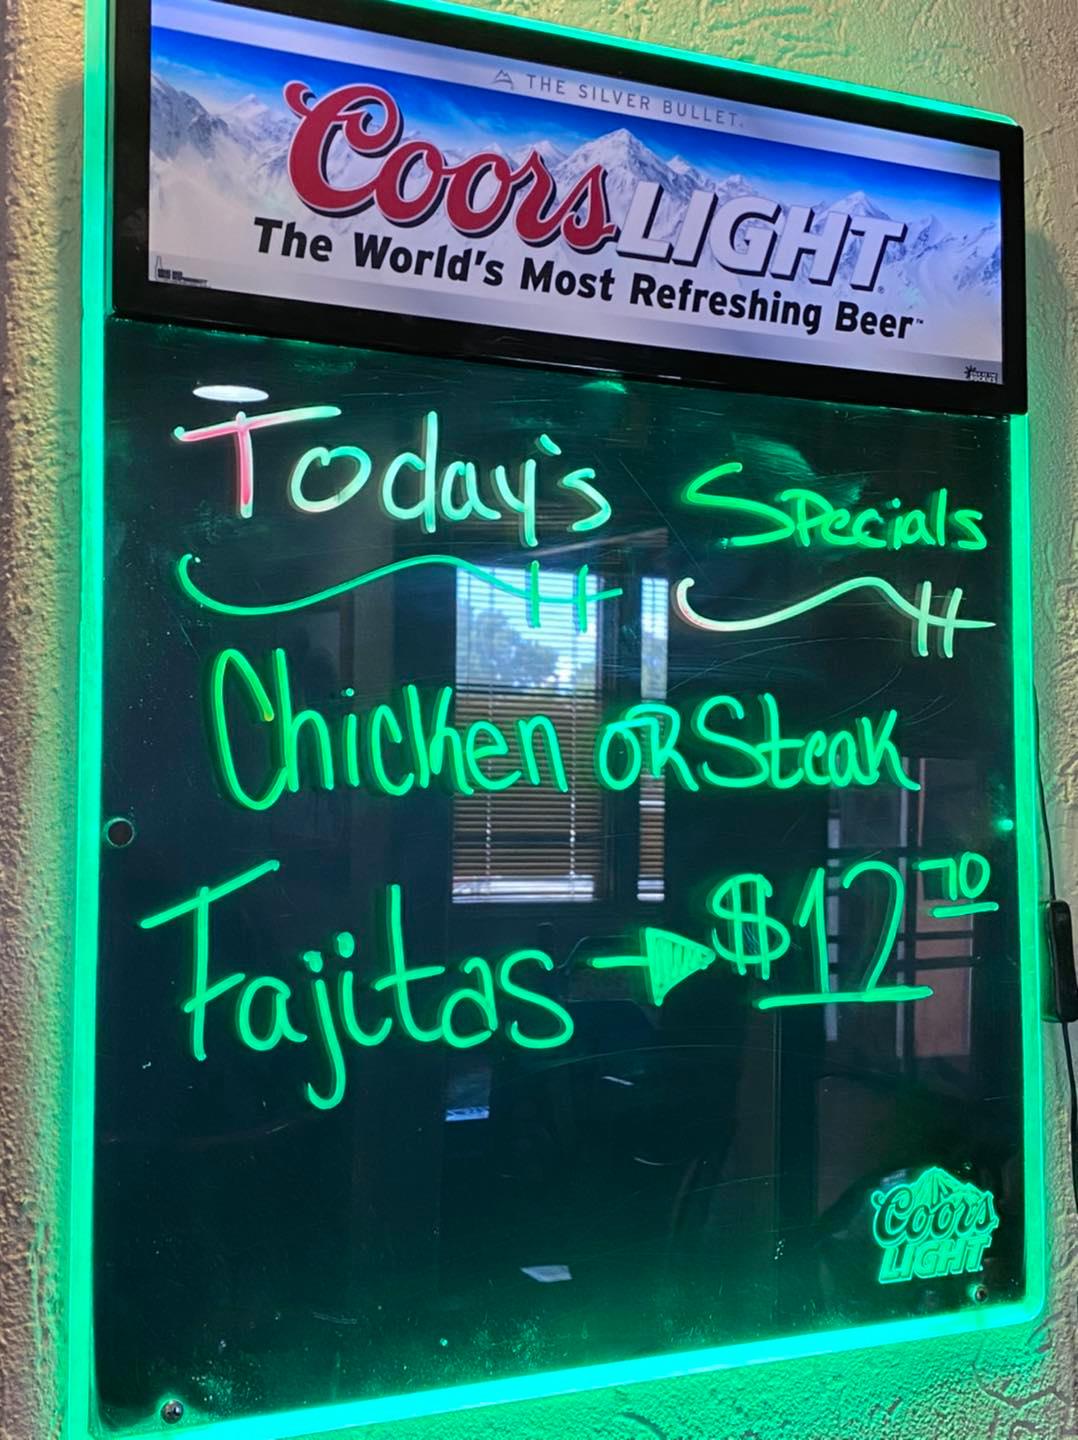 THE SILVER BULLET.
Coors LIGHT
The World's Most Refreshing Beer™
Today's Specials
Chicken OR Steak
Fajitas → $12.70
Coors
LIGHT